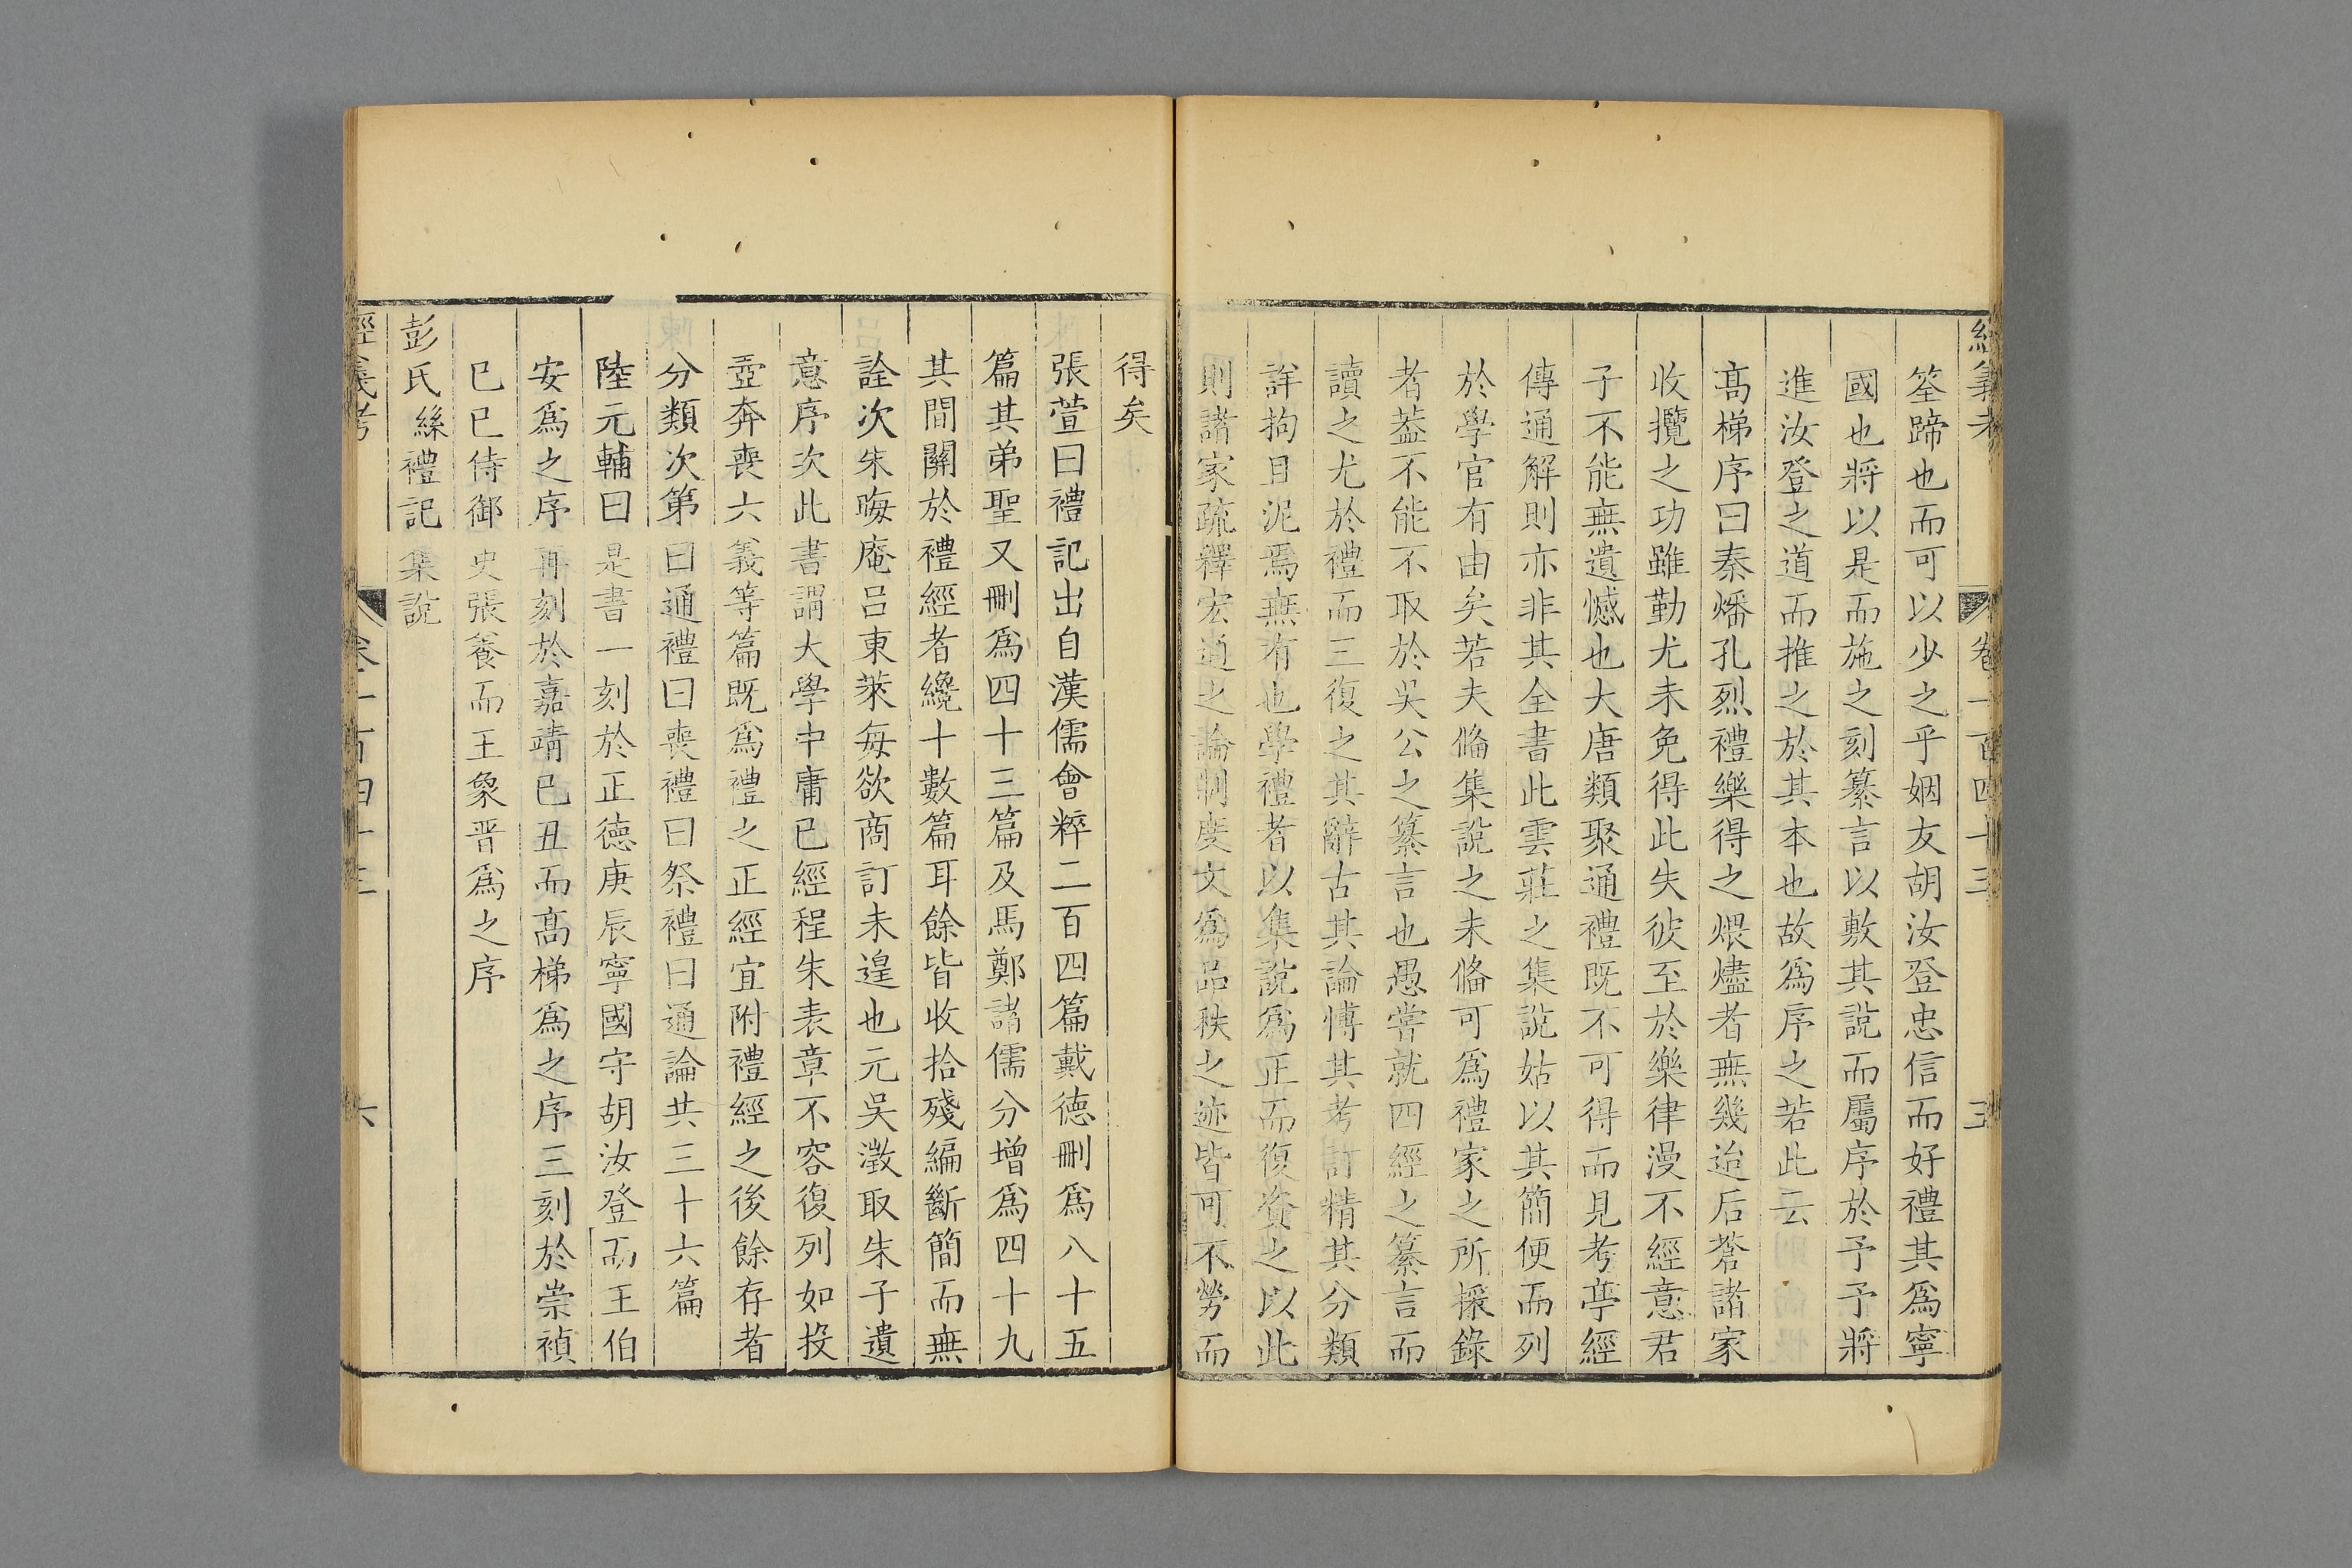 經義考 卷一百四十三 五
筌蹄也而可以少之乎姻友胡汝登忠信而好禮其爲寧
國也將以是而施之刻纂言以敷其說而屬序於予予將
進汝登之道而推之於其本也故爲序之若此云
髙梯序曰秦燔孔烈禮樂得之煨燼者無幾迨后蒼諸家
收攬之功雖勤尤未免得此失彼至於樂律漫不經意君
子不能無遺憾也大唐類聚通禮既不可得而見考亭經
傳通解則亦非其全書此雲莊之集說姑以其簡便而列
於學官有由矣若夫偹集說之未偹可爲禮家之所採錄
者葢不能不取於吳公之纂言也愚嘗就四經之纂言而
讀之尤於禮而三復之其辭古其論愽其考訂精其分類
詳拘目泥爲無有也學禮者以集說爲正而復資之以此
則諸家疏釋宏通之論制度文爲品秩之迹皆可不勞而
得矣
張萱曰禮記出自漢儒會粹二百四篇戴德刪爲八十五
篇其弟聖又刪爲四十三篇及馬鄭諸儒分增爲四十九
其間關於禮經者纔十數篇耳餘皆收拾殘編斷簡而無
詮次朱晦庵呂東萊每欲商訂未遑也元吳澂取朱子遺
意序次此書謂大學中庸已經程朱表章不容復列如投
壺奔喪六義等篇既爲禮之正經宜附禮經之後餘存者
分類次第曰通禮曰喪禮曰祭禮曰通論共三十六篇
陸元輔曰是書一刻於正德庚辰寧國守胡汝登而王伯
安爲之序再刻於嘉靖已丑而髙梯爲之序三刻於崇禎
已已侍御史張養而王象晋爲之序
彭氏絲禮記集說
經義考 卷一百四十三 六